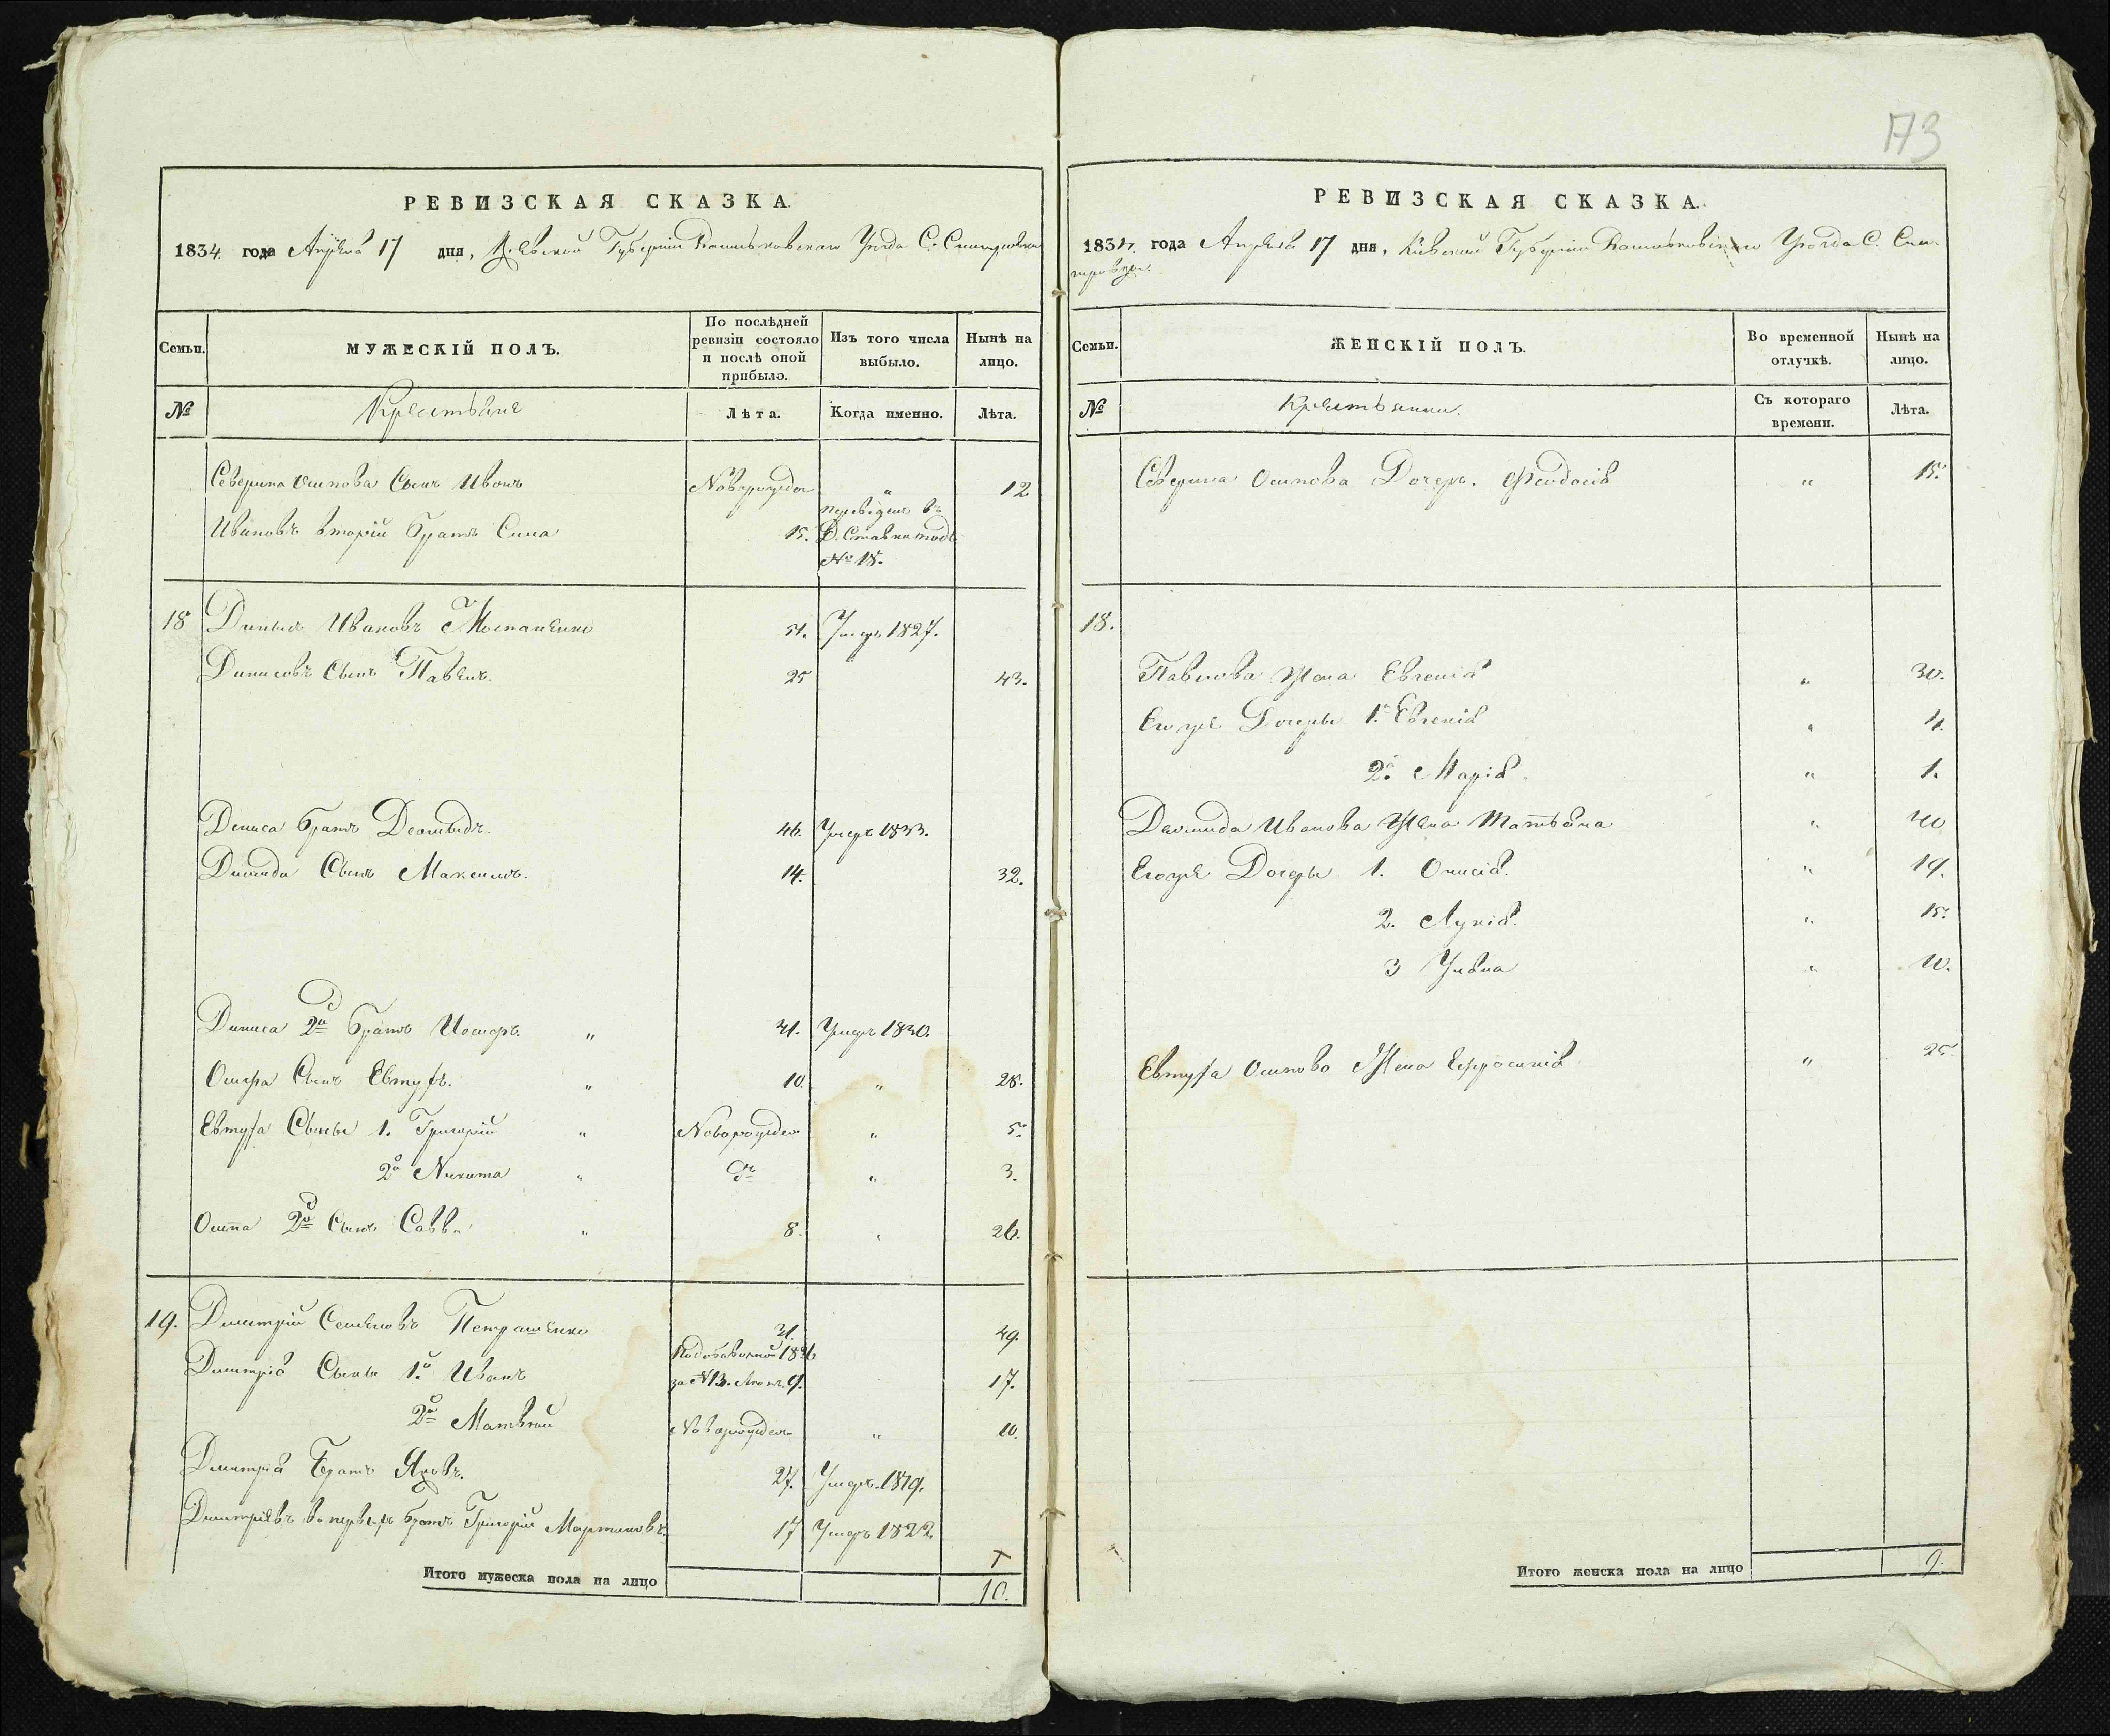 173
РЕВИЗСКАЯ СКАЗКА.
1834 года Апреля 17 дня, Кіевской Губерніи Уѣзда С.
Семьи.
МУЖЕСКІЙ ПОЛЪ.
По послѣдней ревизіи состояло и послѣ оной прибыло.
Изъ того числа выбыло.
Нынѣ на лицо.
№
Крестьяне
Лѣта.
Когда именно.
Лѣта.
Северина Осипова Сынъ Иванъ Новорожден " 12
Ивановъ вторій братъ Сила 15. переведен въ
№ 18.
18 Денисъ Ивановъ 51. Умеръ 1827.
Денисовъ Сынъ Павелъ. 25 43.
Дениса братъ Деомидъ. 46. Умеръ 1833.
Диомида Сынъ Максимъ. 14. 32.
Дениса 2й братъ Иосифъ. " 31. Умеръ 1830.
Осифа Сынъ Евтухъ. " 10. " 28.
Евтуха Сыны 1. Григорій " Новорожден " 5.
2й Никита " " 3.
Осипа 2й Сынъ Савва " 8. " 26.
19. Дмитрій Семеновъ Петрашенко 31. 49.
Дмитрія Сыны 1й Иванъ за №13. 9. 17.
2й Матвѣй Новорожден " 10.
Дмитрія Братъ Яковъ. 27. Умеръ 1819.
Дмитріевъ братъ Григорій Мартиновъ 17 Умеръ 1822.
Итого мужеска пола на лицо 10.
РЕВИЗСКАЯ СКАЗКА.
1834. года Апреля 17 дня, Кіевской Губерніи Уѣзда С.
Семьи.
ЖЕНСКІЙ ПОЛЪ.
Во временной отлучкѣ.
Нынѣ на лицо.
№
Крестьянки.
Съ котораго времени.
Лѣта.
Северина Осипова Дочерь. Феодосія " 15.
18.
Павлова Жена Евгенія " 30.
Его же Дочеры 1я Евгенія " 4.
2я Марія. " 1.
Деомида Иванова Жена Татьяна " 40
Его же Дочеры 1. Онисія. " 19.
2. Лукія. " 15.
3 Уляна " 10.
Евтуха Осипова Жена Ефросинія " 25.
Итого женска пола на лицо 9.